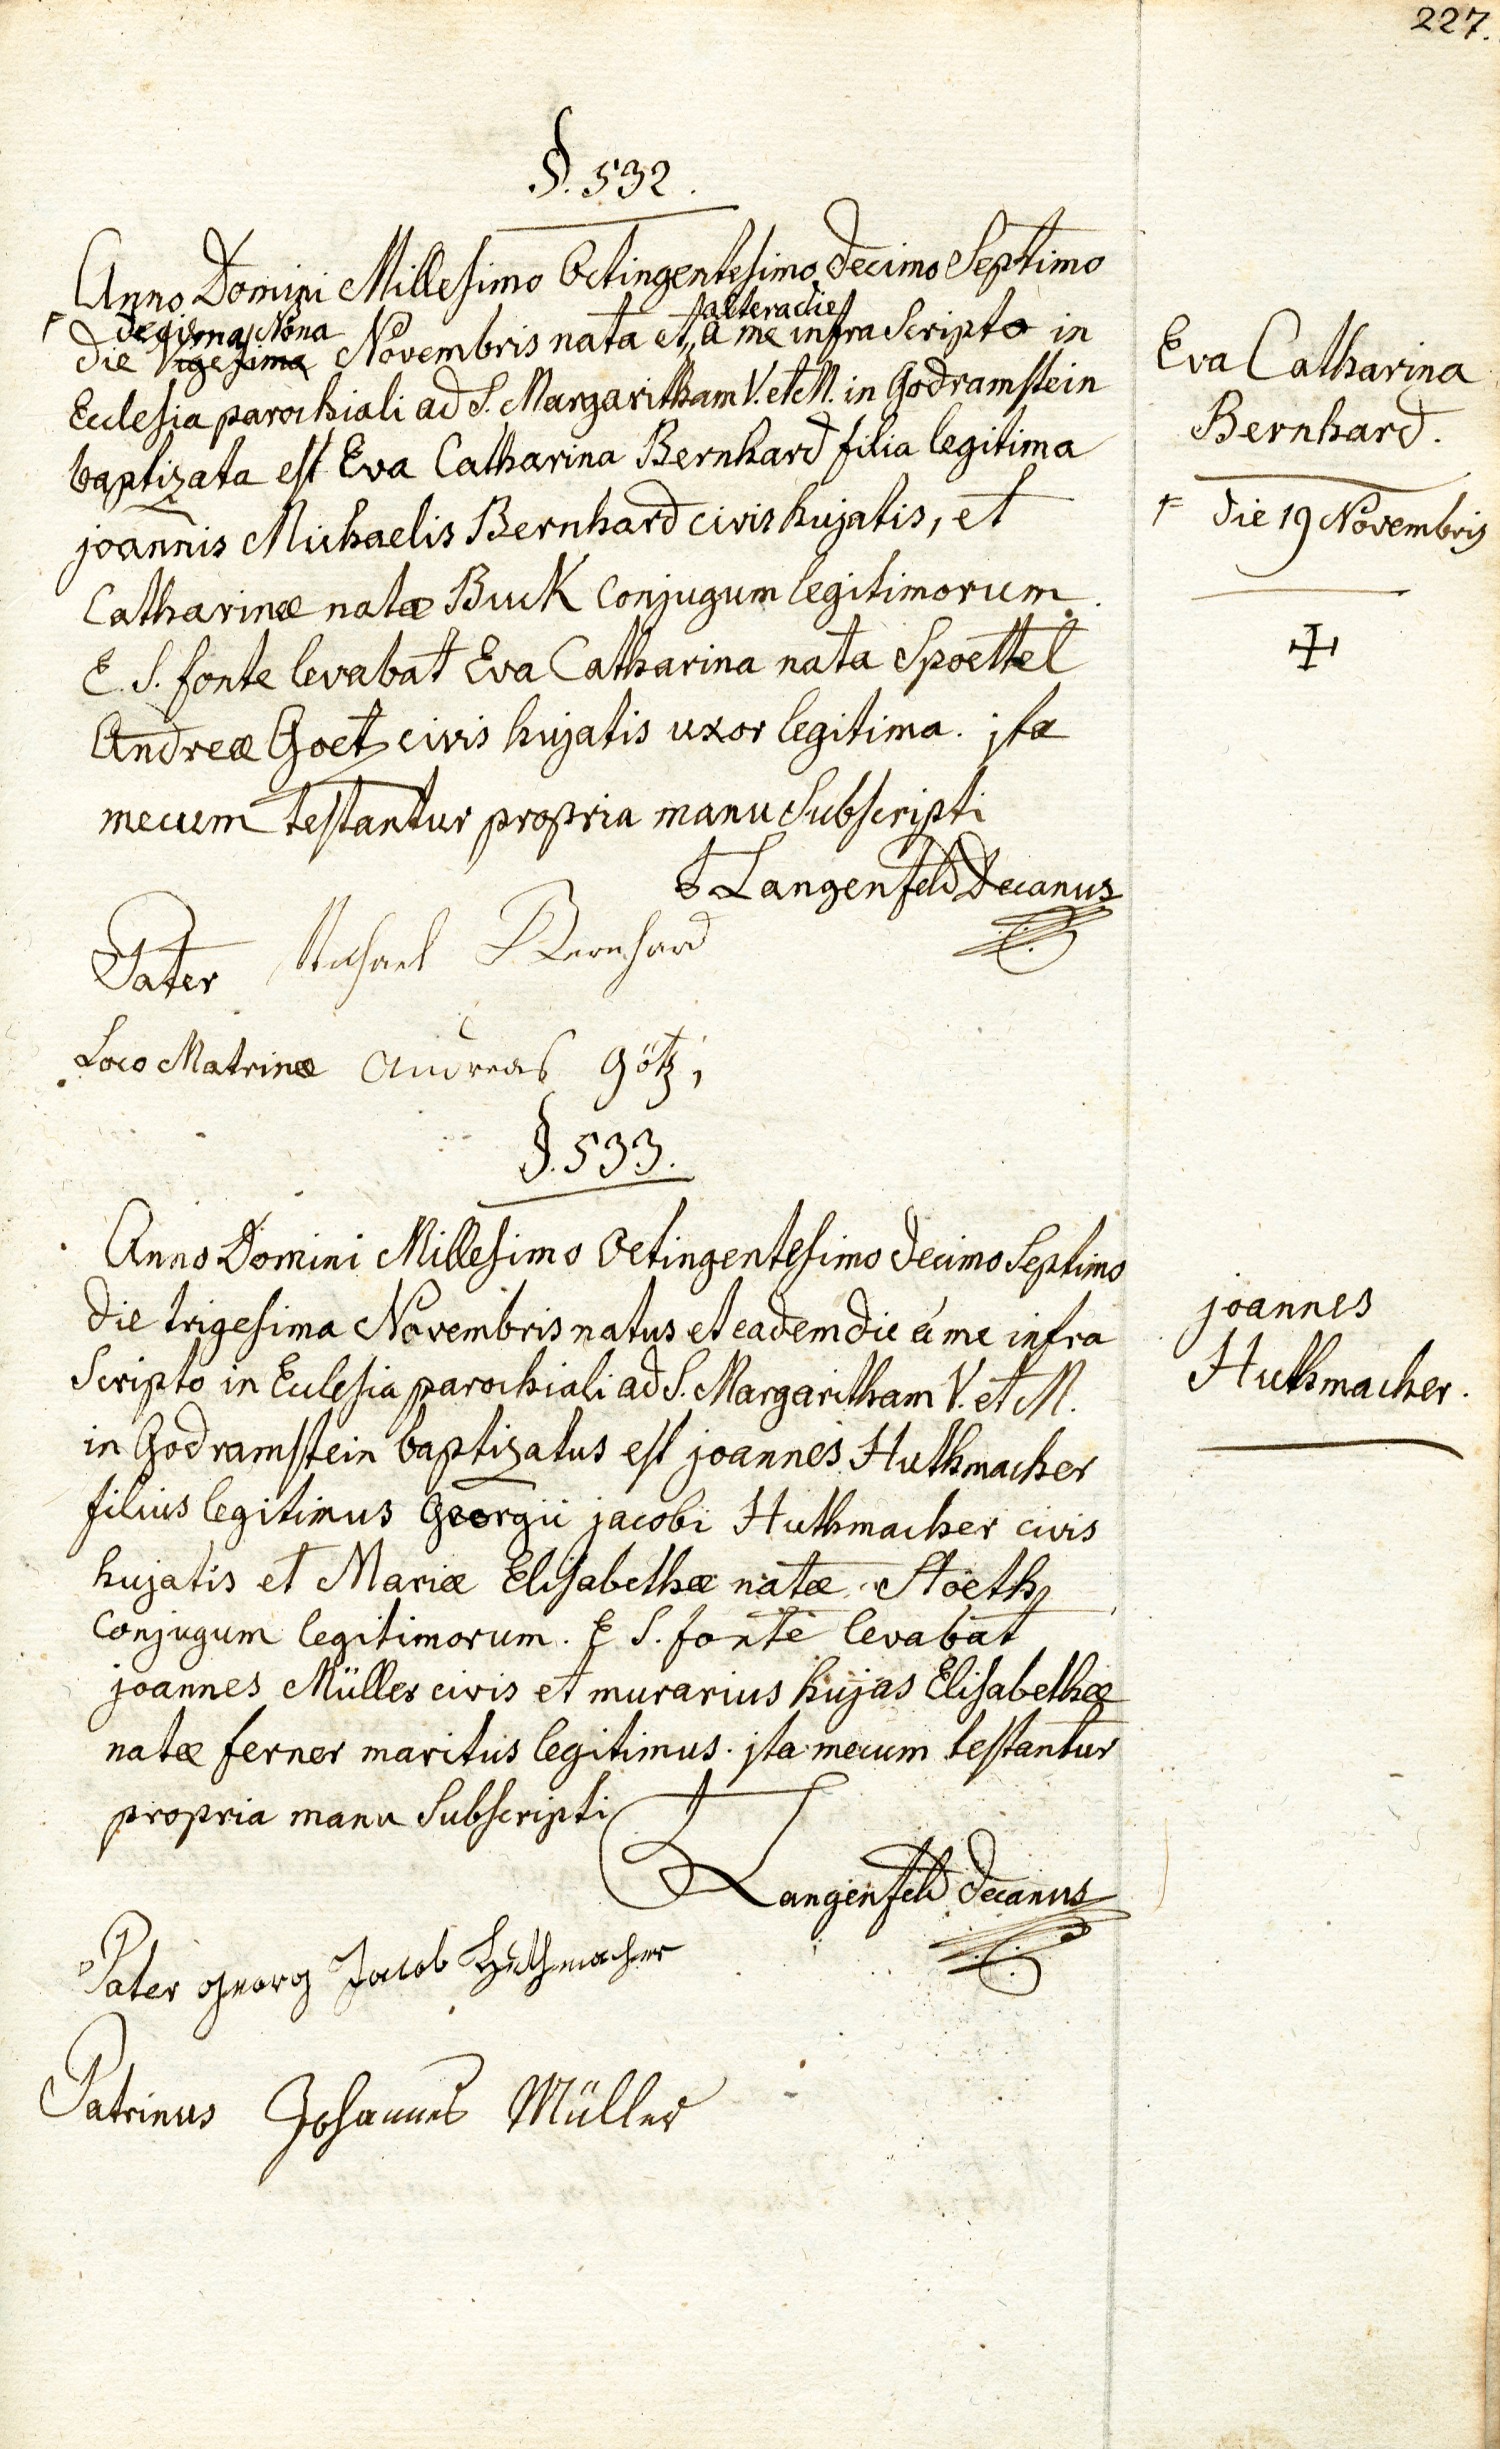 227.
§. 532.
Anno Domini Millesimo Octingentesimo decimo Septimo
decima Nona altera die
die Vigesima Novembris nata et,, a me infra Scripto in
Ecclesia parochiali ad S. Margaritham V. et M. in Godramstein
baptizata est Eva Catharina Bernhard filia legitima
joannis Michaelis Bernhard civis hujatis, et
Catharinæ natæ Buck Conjugum legitimorum.
E. S. fonte levabat Eva Catharina nata Spoettel
Andreæ Goetz civis hujatis uxor legitima. jta
mecum testantur propria manu Subscripti
Langenfeld Decanus
Pater Michael Bernhard
Loco Matrinæ Andreas Götz,
Eva Catharina
Bernhard.
die 19 Novembris
§. 533.
Anno Domini Millesimo Octingentesimo decimo Septimo
die trigesima Novembris natus et eadem die á me infra
Scripto in Ecclesia parochiali ad S. Margaritham V. et M.
in Godramstein baptizatus est joannes Huthmacher
filius legitimus Georgii jacobi Huthmacher civis
hujatis et Mariæ Elisabethæ natæ Stoeth
Conjugum legitimorum. E S. fonte levabat
joannes Müller civis et murarius hujas Elisabethæ
natæ ferner maritus legitimus. jta mecum testantur
propria manu Subscripti
Langenfeld Decanus
Pater Georg Jacob Huthmacher
Patrinus Johannes Müller
joannes
Huthmacher.